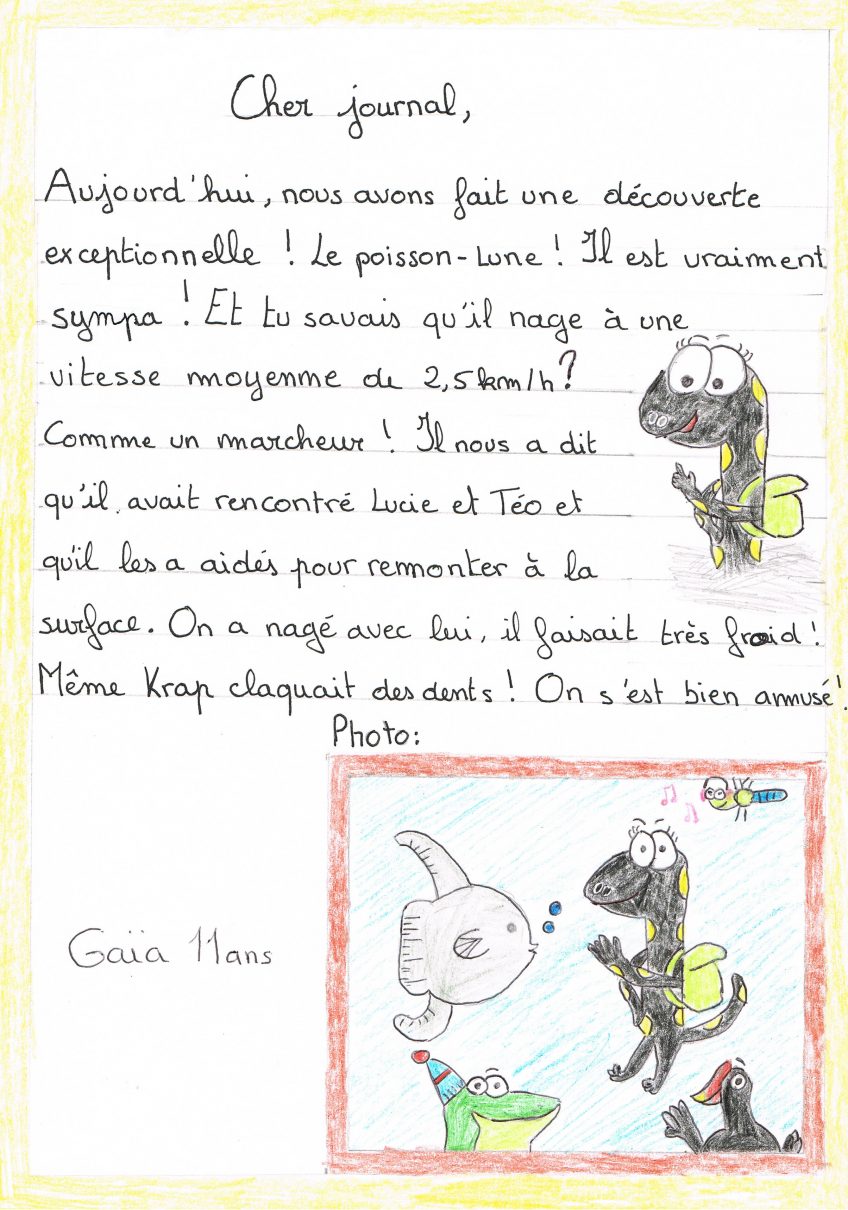 Cher journal,
Aujourd'hui, nous avons fait une découverte
exceptionnelle ! Le poisson-lune ! Il est vraiment
sympa ! Et tu savais qu'il nage à une
vitesse moyenne de 2,5 km/h ?
Comme un marcheur ! Il nous a dit
qu'il avait rencontré Lucie et Téo et
qu'il les a aidés pour remonter à la
surface. On a nagé avec lui, il faisait très froid !
Même Krap claquait des dents ! On s'est bien amusé !
Photo:
Gaïa 11 ans